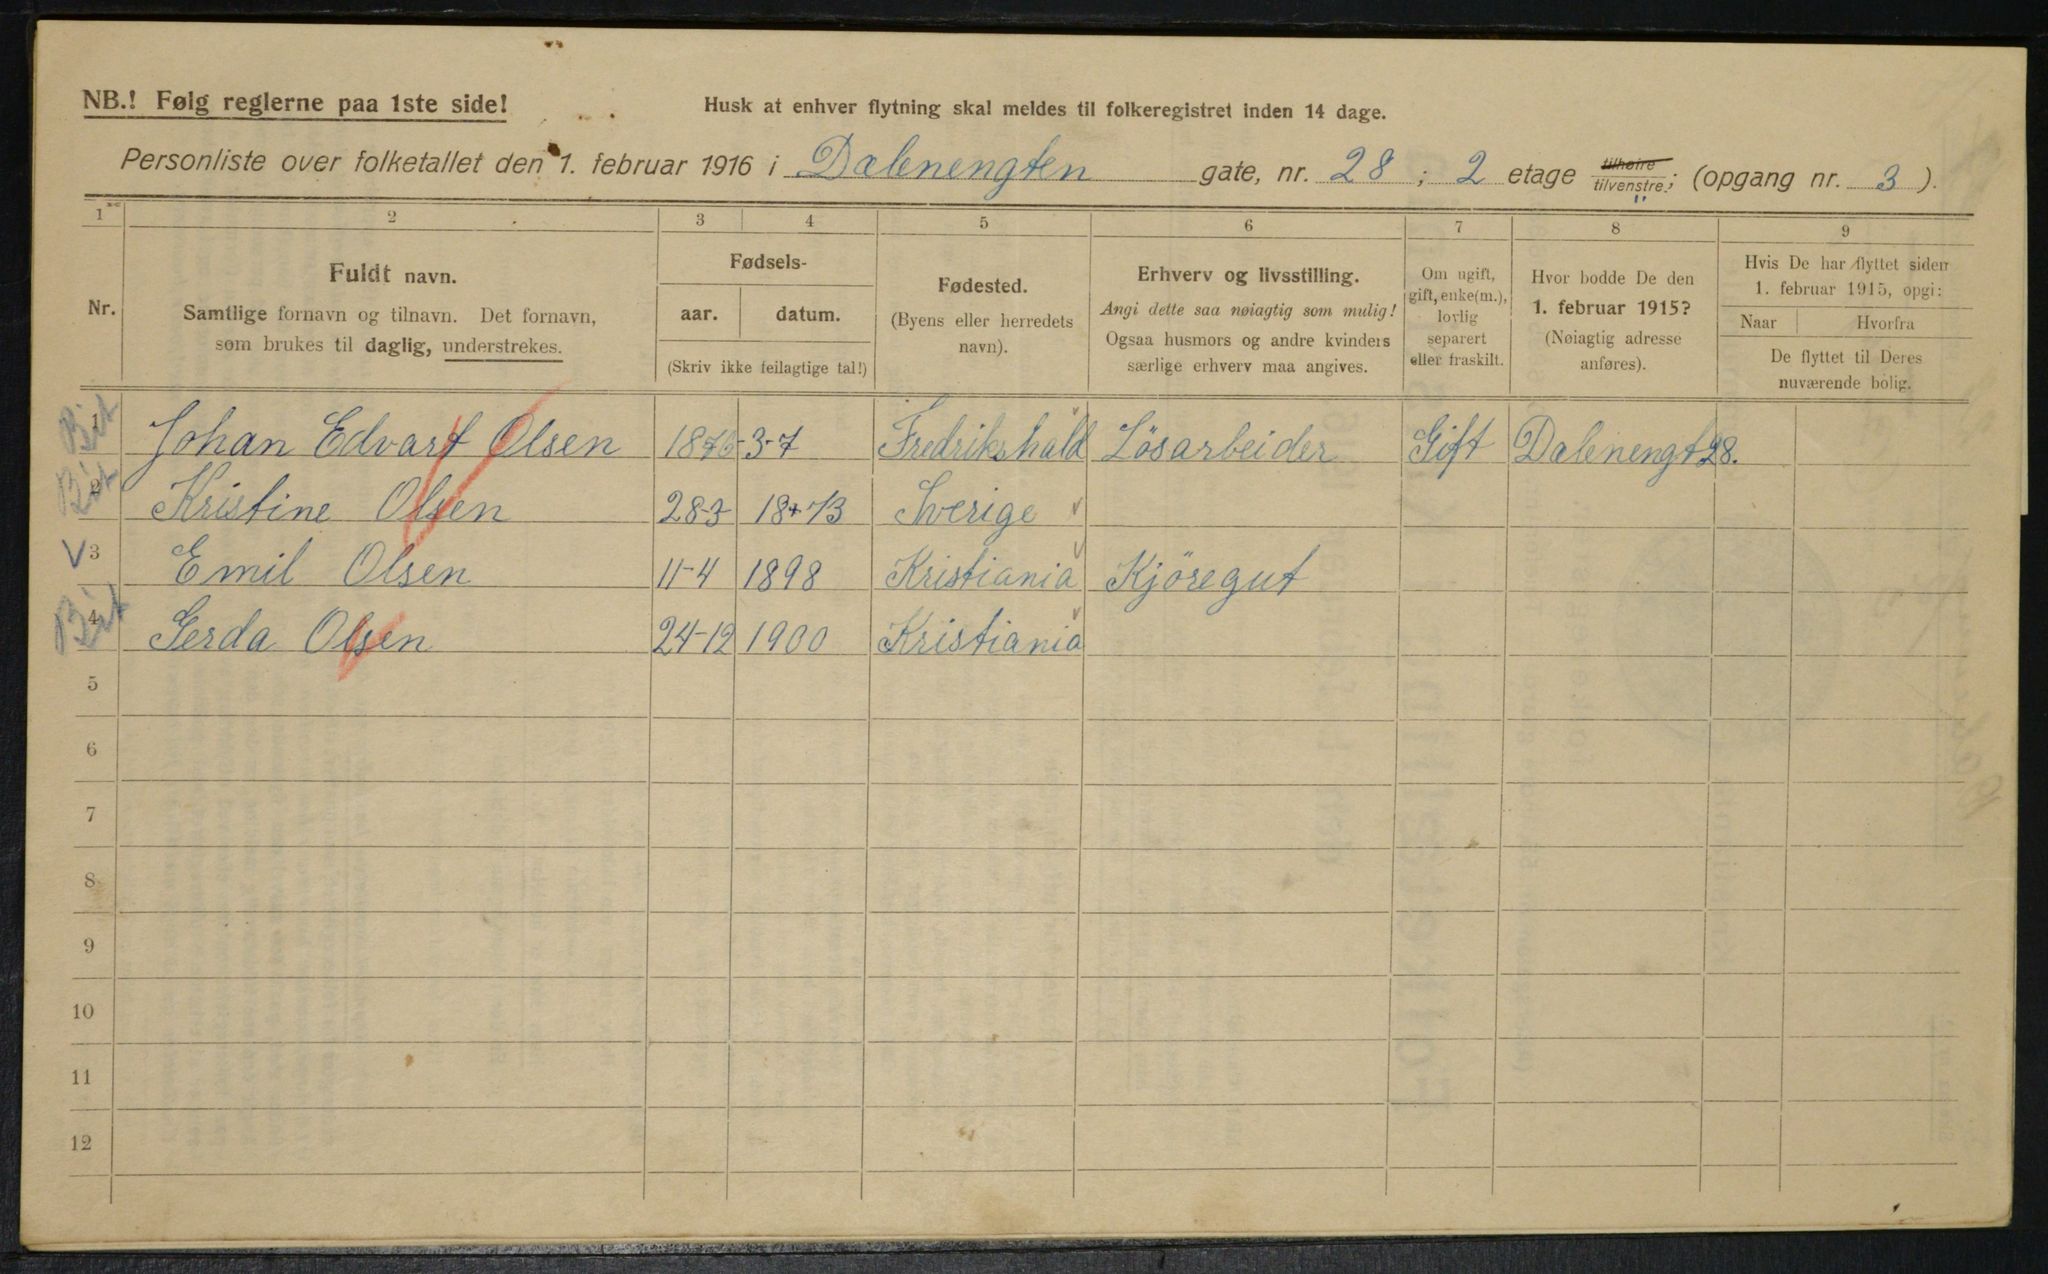 NB.! Følg reglerne paa 1ste side!
Husk at enhver flytning skal meldes til folkeregistret inden 14 dage.
Personliste over folketallet den 1. februar 1916 i Dælenengten gate, nr. 28 ; 2 etage tilhøire tilvenstre.; (opgang nr. 3 ).
1 2 3 4 5 6 7 8 9
Nr.
Fuldt navn.
Samtlige fornavn og tilnavn. Det fornavn,
som brukes til daglig, understrekes.
Fødsels-
aar. datum.
(Skriv ikke feilagtige tal!)
Fødested.
(Byens eller herredets
navn).
Erhverv og livsstilling.
Angi dette saa nøiagtig som mulig!
Ogsaa husmors og andre kvinders
særlige erhverv maa angives.
Om ugift,
gift, enke(m.),
lovlig
separert
eller fraskilt.
Hvor bodde De den
1. februar 1915?
(Nøiagtig adresse
anføres).
Hvis De har flyttet siden
1. februar 1915, opgi:
Naar Hvorfra
De flyttet til Deres
nuværende bolig.
1 Johan Edvart Olsen 3-7 Fredrikshald Lösarbeider Gift Dælenengt 28.
2 Kristine Olsen 28-3 1873 Sverige
3 Emil Olsen 11-4 1898 Kristiania Kjöregut
4 Gerda Olsen 24-12 1900 Kristiania
5
6
7
8
9
10
11
12